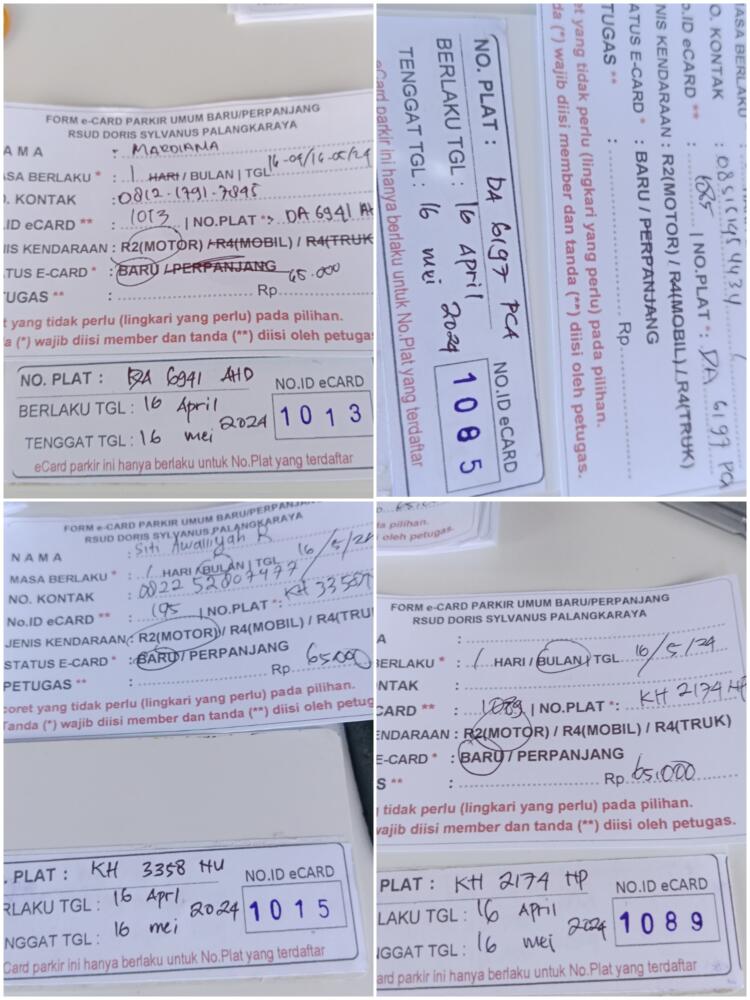 FORM e-CARD PARKIR UMUM BARU/PERPANJANG
RSUD DORIS SYLVANUS PALANGKARAYA
AMA : MARDIANA
ASA BERLAKU * : 1 HARI / BULAN | TGL 16-04/16-05/24
. KONTAK : 0812-1791-7895
.ID eCARD ** : 1013 | NO.PLAT * : DA 6941 AH
NIS KENDARAAN : R2(MOTOR) / R4(MOBIL) / R4(TRUK
TUS E-CARD * : BARU / PERPANJANG
TUGAS ** : Rp 65.000
t yang tidak perlu (lingkari yang perlu) pada pilihan.
a (*) wajib diisi member dan tanda (**) diisi oleh petugas
NO. PLAT : DA 6941 AHD
NO.ID eCARD
BERLAKU TGL : 16 April 2024
1013
TENGGAT TGL : 16 mei
eCard parkir ini hanya berlaku untuk No.Plat yang terdaftar
ASA BERLAKU
O. KONTAK
o.ID eCARD ** | NO.PLAT * : DA 6197 PCA
NIS KENDARAAN : R2(MOTOR) / R4(MOBIL) / R4(TRUK)
TATUS E-CARD * : BARU / PERPANJANG
TUGAS ** : Rp
et yang tidak perlu (lingkari yang perlu) pada pilihan.
da (*) wajib diisi member dan tanda (**) diisi oleh petugas.
NO. PLAT : DA 6197 PCA
NO.ID eCARD
BERLAKU TGL : 16 April 2024
1085
TENGGAT TGL : 16 mei
eCard parkir ini hanya berlaku untuk No.Plat yang terdaftar
FORM e-CARD PARKIR UMUM BARU/PERPANJANG
RSUD DORIS SYLVANUS PALANGKARAYA
NAMA : Siti Awaliyah R
MASA BERLAKU * : 1 HARI / BULAN | TGL 16/5/24
NO. KONTAK : 0822 52807477
No.ID eCARD ** : | NO.PLAT * : KH 3358
JENIS KENDARAAN : R2(MOTOR) / R4(MOBIL) / R4(TRU
STATUS E-CARD * : BARU / PERPANJANG
PETUGAS ** : Rp 65000
coret yang tidak perlu (lingkari yang perlu) pada pilihan.
Tanda (*) wajib diisi member dan tanda (**) diisi oleh petugas.
. PLAT : KH 3358 HU
NO.ID eCARD
RLAKU TGL : 16 Aprl 2024
1015
NGGAT TGL : 16 mei
Card parkir ini hanya berlaku untuk No.Plat yang terdaftar
a pilihan.
i oleh petugas.
FORM e-CARD PARKIR UMUM BARU/PERPANJANG
RSUD DORIS SYLVANUS PALANGKARAYA
A :
BERLAKU * : 1 HARI / BULAN | TGL 16/5/24
NTAK :
CARD ** : 1089 | NO.PLAT * : KH 2174 HP
ENDARAAN : R2(MOTOR) / R4(MOBIL) / R4(TRUK)
E-CARD * : BARU / PERPANJANG
S ** : Rp 65.000
tidak perlu (lingkari yang perlu) pada pilihan.
wajib diisi member dan tanda (**) diisi oleh petugas.
PLAT : KH 2174 HP
NO.ID eCARD
LAKU TGL : 16 April 2024
1089
GGAT TGL : 16 mei
ard parkir ini hanya berlaku untuk No.Plat yang terdaftar